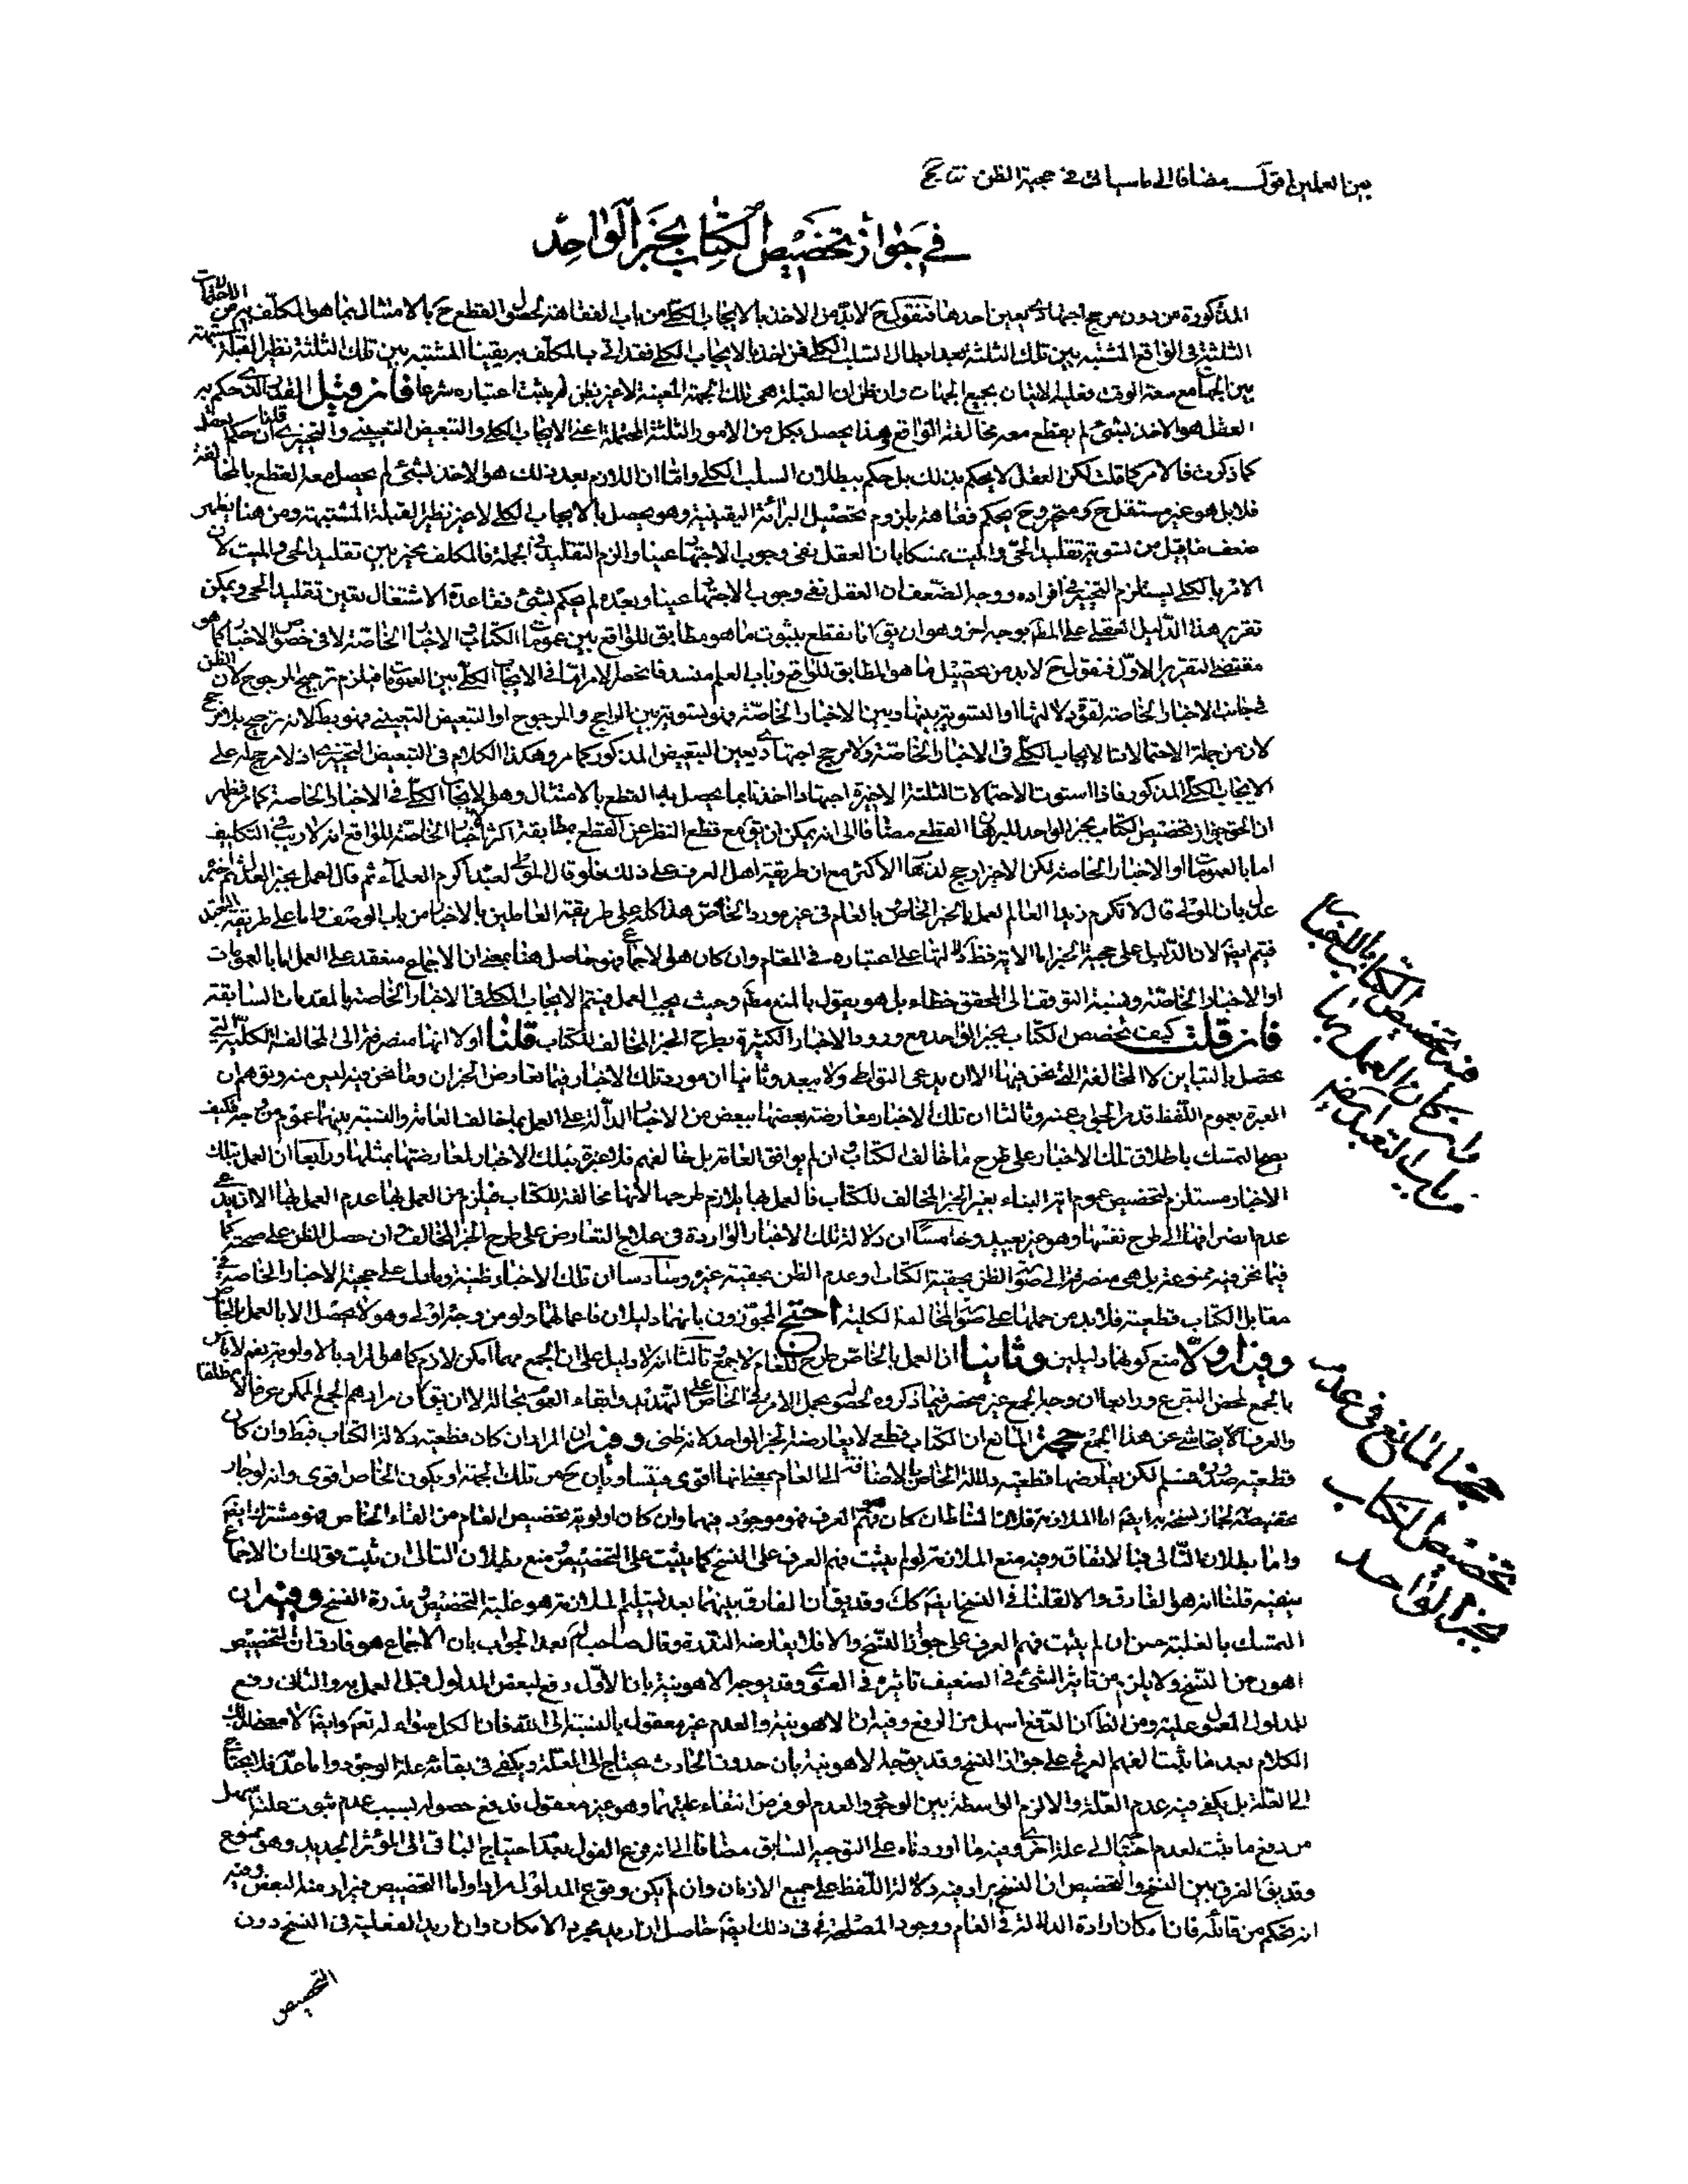 بين العملين اقول مضافا الى ما سياتى فى حجية الظن نتايج
فى جواز تخصيص الكتاب بخبر الواحد
المذكورة من دون مرجح اجتهادى يعين احدها فنقول ح لا بد من الاخذ بالايجاب الكلى من باب الفقاهة لحصول القطع ح بالامتثال بما هو المكلف به من الاحتمالات
الثلثة فى الواقع المشتبه بين تلك الثلثة بعد ابطال السلب الكلى فمن اخذ بالايجاب الكلى فقد اتى بالمكلف به يقينا المشتبه بين تلك الثلثة نظير القبلة المشتبهة
بين الجهات مع سعة الوقت فعليه الاتيان بجميع الجهات وان ظن ان القبلة هى تلك الجهة المعينة لا غير بظن لم يثبت اعتباره شرعا فان قيل القدر الذى حكم به
العقل هو الاخذ بشئ لم يقطع معه مخالفة الواقع وهذا يحصل بكل من الامور الثلثة المحتملة اعنى الايجاب الكلى والتبعيض التعيينى والتخييرى قلنا ان حكم العقل
كما ذكرت فالامر كما قلت لكن العقل لا يحكم بذلك بل حكم ببطلان السلب الكلى واما ان اللازم بعد ذلك هو الاخذ بشئ لم يحصل معه القطع بالمخالفة
فلا بل هو غير مستقل ح يحكم فقاهة بلزوم تحصيل البرائة اليقينية وهو يحصل بالايجاب الكلى لا غير نظير القبلة المشتبهة ومن هنا يظهر
ضعف ما قيل من تسوية تقليد الحى والميت متمسكا بان العقل نفى وجوب الاجتهاد عينا والزم التقليد فى الجملة فالمكلف مخير بين تقليد الحى والميت لان
الامر بالكلى يستلزم التخيير فى افراده ووجه الضعف ان العقل نفى وجوب الاجتهاد عينا وبعده لم يحكم بشئ فقاعدة الاشتغال تعين تقليد الحى ويمكن
تقرير هذا الدليل العقلى على المط بوجه اخر وهو ان يق انا نقطع بثبوت ما هو مطابق للواقع بين عمومات الكتاب والاخبار الخاصة لا فى خصوص الاخبار كما هو
مقتضى التقرير الاول فنقول ح لا بد من تحصيل ما هو المطابق للواقع وباب العلم منسد فانحصر الامر اما فى الايجاب الكلى بين العمومات فيلزم ترجيح المرجوح لان الظن
فى جانب الاخبار الخاصة لقوة دلالتها او التسوية بينها وبين الاخبار الخاصة فهو تسوية بين الراجح والمرجوح او التبعيض التعيينى فهو بط لانه ترجيح بلا مرجح
لان من جملة الاحتمالات الايجاب الكلى فى الاخبار الخاصة ولا مرجح اجتهادى يعين التبعيض المذكور كما مر وهكذا الكلام فى التبعيض التخييرى اذ لا مرجح له على
الايجاب الكلى المذكور فاذا استوت الاحتمالات الثلثة الاخيرة اجتهادا اخذنا بما يحصل به القطع بالامتثال وهو الايجاب الكلى فى الاخبار الخاصة كما مر فظهر
ان الحق جواز تخصيص الكتاب بخبر الواحد للبرهان القطعى مضافا الى انه يمكن ان يق مع قطع النظر عن القطع بمطابقة اكثر الاخبار الخاصة للواقع انه لا ريب فى التكليف
اما بالعمومات او الاخبار الخاصة لكن الاخير ارجح لذهاب الاكثر مع ان طريقة اهل العرف على ذلك فلو قال المولى لعبده اكرم العلماء ثم قال اعمل بخبر العدل ثم اخبر
عدل بان المولى قال لا تكرم زيدا العالم لعمل بالخبر الخاص بالعام فى غير مورد الخاص هذا كله على طريقة العاملين بالاخبار من باب الوصف واما على طريقة التعبد
فيتم ايضا لان الدليل على حجية الخبر اما الاية فظ دلالتها على اعتباره فى المقام وان كان هو الاجماع فهو حاصل هنا بمعنى ان الاجماع منعقد على العمل اما بالعمومات
او الاخبار الخاصة ونسبة التوقف الى المحقق خطاء بل هو يقول بالمنع مط وحيث يجب العمل فيتم الايجاب الكلى فى الاخبار الخاصة بالمقدمات السابقة
فان قلت كيف تخصص الكتاب بخبر الواحد مع ورود الاخبار الكثيرة بطرح الخبر المخالف للكتاب قلنا اولا انها منصرفة الى المخالفة الكلية التى
تحصل بالتباين لا المخالفة التى نحن فيها الا ان يدعى التواطى ولا يبعد وثانيا ان مورد تلك الاخبار فيما تعارض الخبران وما نحن فيه ليس منه وتوهم ان
العبرة بعموم اللفظ قد مر الجواب عنه وثالثا ان تلك الاخبار معارضة بعضها ببعض من الاخبار الدالة على العمل بما خالف العامة والنسبة بينهما عموم من وجه فكيف
يصح التمسك باطلاق تلك الاخبار على طرح ما خالف الكتاب وان لم يوافق العامة بل خالفهم فلا عبرة بتلك الاخبار لمعارضتها بمثلها ورابعا ان العمل بتلك
الاخبار مستلزم لتخصيص عموم اية البناء بغير الخبر المخالف للكتاب فالعمل بها يلازم طرحها لانها مخالفة للكتاب فيلزم من العمل بها عدم العمل بها الا ان يدعى
عدم انصرافها الى طرح نفسها وهو غير بعيد وخامسا ان دلالة تلك الاخبار الواردة فى علاج التعارض على طرح الخبر المخالف وان حصل الظن على صحته كما
فيما نحن فيه ممنوعة بل هى منصرفة الى صورة الظن بحقية الكتاب وعدم الظن بحقية غيره وسادسا ان تلك الاخبار ظنية وما دل على حجية الاخبار الخاصة فى
مقابل الكتاب قطعية فلا بد من حملها على صورة المخالفة الكلية احتج المجوزون بانهما دليلان فاعمالهما ولو من وجه اولى وهو لا يحصل الا بالعمل بالخاص
وفيه اولا منع كونهما دليلين وثانيا ان العمل بالخاص طرح للعام لا جمع وثالثا انه لا دليل على ان الجمع مهما امكن لازم كما هو المراد بالاولوية نعم لا باس
بالجمع لمحض التبرع ورابعا ان وجه الجمع غير منحصر فيما ذكروه لحصوله بحمل الامر فى الخاص على التهديد وابقاء العموم بحاله الا ان يق ان مرادهم الجمع الممكن عرفا لا مطلقا
والعرف لا يتحاشى عن هذا الجمع حجة المانع ان الكتاب قطعى لا يعارضه الخبر الواحد لانه ظنى وفيه ان المراد ان كان قطعية دلالة الكتاب فبط وان كان
قطعية صدوره فمسلم لكن يعارضها قطعية دلالة الخاص بالاضافة الى العام بمعنى انها اقوى فيتساويان ح من تلك الجهة ويكون الخاص اقوى وانه لو جاز
تخصيصه لجاز نسخه به ايضا اما الملازمة فلان المناط ان كان فهم العرف فهو موجود فيهما وان كان اولوية تخصيص العام من الغاء الخاص فهو مشترك ايضا
واما بطلان التالى فبالاتفاق وفيه منع الملازمة لو لم يثبت فهم العرف على النسخ كما يثبت على التخصيص ومنع بطلان التالى ان ثبت قولك ان الاجماع
ينفيه قلنا انه هو الفارق والا لقلنا فى النسخ ايضا كك وقد يق ان الفارق بينهما بعد تسليم الملازمة هو غلبة التخصيص وندرة النسخ وفيه ان
التمسك بالغلبة حسن ان لم يثبت فهم العرف على جواز النسخ والا فلا يعارضه الندرة وقال صاحب لم بعد الجواب بان الاجماع هو فارق ان التخصيص
اهون من النسخ ولا يلزم من تاثير الشئ فى الضعيف تاثيره فى القوى وقد يوجه الاهونية بان الاول دفع لبعض المدلول قبل العمل به والثانى رفع
للمدلول المعمول عليه ومن الظ ان الدفع اسهل من الرفع وفيه ان الاهونية والعدم غير معقول بالنسبة الى الله فان الكل سواء له تعالى وايضا لا معنى لذلك
الكلام بعد ما يثبت الفهم العرفى على جواز النسخ وقد يوجه الاهونية بان حدوث الحادث يحتاج الى العلة ويكفى فى بقائه علة الوجود واما عدمه فلا يحتاج
الى العلة بل يكفى فيه عدم العلة والا لزم الواسطة بين الوجود والعدم لو فرض انتفاء علتيهما وهو غير معقول فدفع حصوله بسبب عدم ثبوت علته اسهل
من رفع ما يثبت لعدم احتياجه الى علة اخرى وفيه ما اوردناه على التوجيه السابق مضافا الى انه فرع القول بعدم احتياج الباقى الى المؤثر الجديد وهو ممنوع
وقد يق الفرق بين النسخ والتخصيص ان النسخ يراد فيه دلالة اللفظ على جميع الازمان وان لم يكن وقوع المدلول مرادا واما التخصيص فيراد منه البعض وفيه
انه تحكم من قائله فان امكان ارادة الدلالة فى العام ووجود المصلحة فى ذلك ايضا حاصل ان اريد مجرد الامكان وان اريد الفعلية فى النسخ دون
التخصيص
فى تخصيص الكتاب بالاخبار
وان كان العمل بها
من باب التعبد ايضا
حجة المانع فى عدم
تخصيص الكتاب
بخبر الواحد